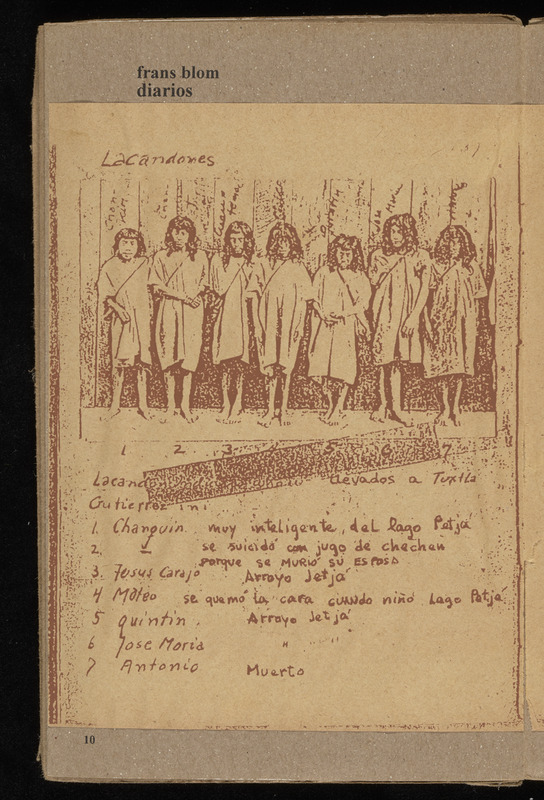 frans blom
diarios
Lacandones
1 2 3 5 6 7
Lacand llevados a Tuxtla
Gutierrez
1. Chanquin muy inteligente, del lago Petjá
2. se suicidó con jugo de chechen
porque se MURIÓ SU ESPOSA
3. Jesus Carajo Arroyo Jetjá
4 Mateo se quemó la cara cuando niño Lago Petjá
5 quintin. Arroyo Jetjá
6 Jose Maria " "
7 Antonio Muerto
10